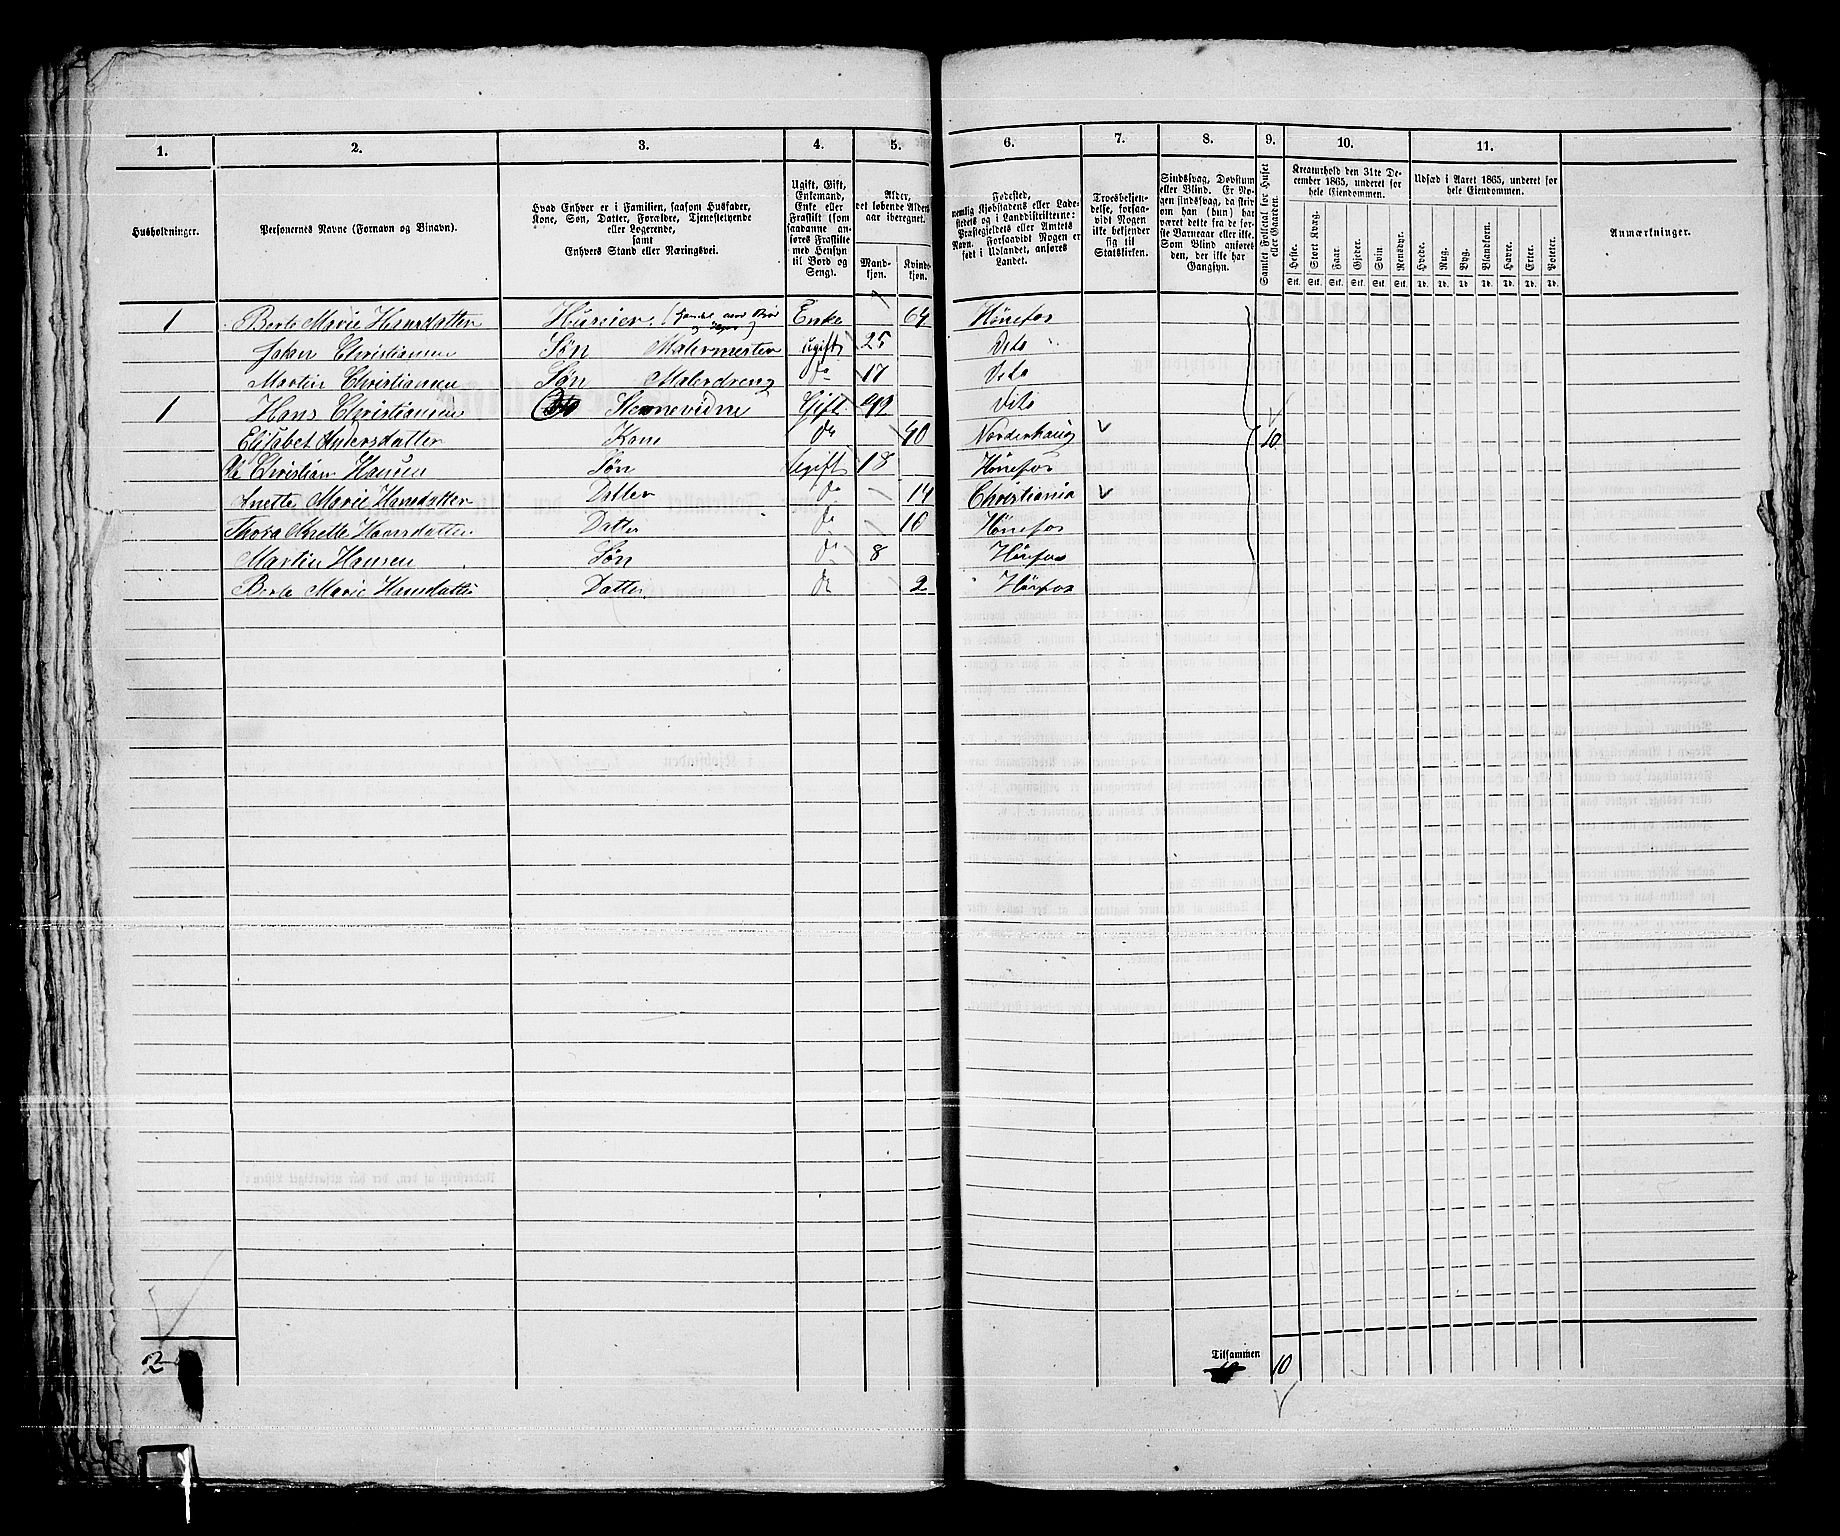 1. 2. 3. 4. 5. 6. 7. 8. 9. 10. 11.
Husholdninger.
Personernes Navne (Fornavn og Binavn).
Hvad Enhver er i Familien, saasom Husfader,
Kone, Søn, Datter, Forældre, Tjenestetyende
eller Logerende,
samt
Enhvers Stand eller Næringsvei.
Ugift, Gift,
Enkemand,
Enke eller
Fraskilt (som
saadanne an-
føres Fraskilte
med Hensyn
til Bord og
Seng).
Alder,
det løbende Alders-
aar iberegnet.
Mand-
kjøn.
Kvind-
kjøn.
Fødested,
nemlig Kjøbstadens eller Lade-
stedets og i Landdistrikterne:
Præstegjeldets eller Amtets
Navn. Forsaavidt Nogen er
født i Udlandet, anføres
Landet.
Troesbekjen-
delse, forsaa-
vidt Nogen
ikke bekjender
sig til
Statskirken.
Sindssvag, Døvstum
eller Blind. Er No-
gen sindssvag, da skriv
om han (hun) har
været dette fra de før-
ste Barneaar eller ikke.
Som Blind anføres
den, der ikke har
Gangsyn.
Samlet Folketal for Huset
eller Gaarden.
Kreaturhold den 31te De-
cember 1865, underet for
hele Eiendommen.
Heste. Stort Kvæg. Faar. Gjeder. Svin Rensdyr.
Stk. Stk. Stk. Stk. Stk. Stk.
Udsæd i Aaret 1865, underet for
hele Eiendommen.
Hvede. Rug. Byg. Blandkorn. Havre. Erter. Poteter.
Td. Td. Td. Td. Td. Td. Td.
Anmærkninger.
1 Berte Marie Hansdatter Enke 64 Hønefos
Johan Christiansen Søn Malermester ugift 25 Dito
Martin Christiansen Søn Malerdreng do 17 Dito
1 Hans Christiansen Stevnevidne Gift 42 Dito
Elisabet Andersdatter Kone do 40 Norderhaug 10
Christian Hansen Søn Ugift 18 Hønefos
Anette Marie Hansdatter Datter do 14 Christiania
Thora Hansdatter Datter do 10 Hønefos
Martin Hansen Søn do 8 Hønefos
Berte Marie Hansdatter Datter do 2 Hønefos
2
Tilsammen 10